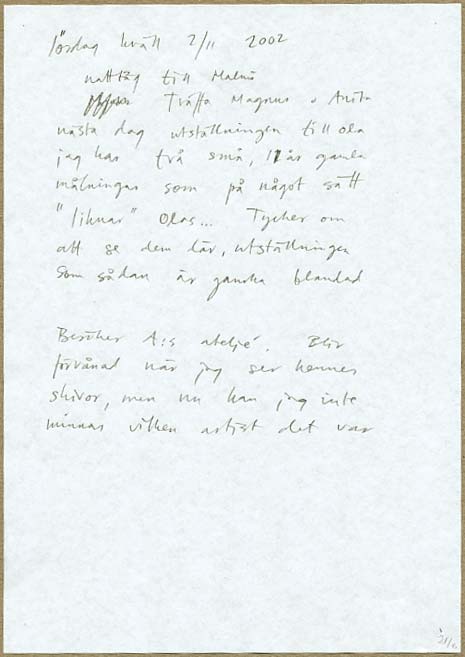 lördag kväll 2/11 2002
nattåg till Malmö
Träffa Magnus o Anita
nästa dag utställningen till ola
jag har två små, 11 år gamla
målningar som på något sätt
"liknar" Olas... Tycker om
att se dem där, utställningen
som sådan är ganska blandad
Besöker A:s ateljé. Blir
förvånad när jag ser hennes
skivor, men nu kan jag inte
minnas vilken artist det var